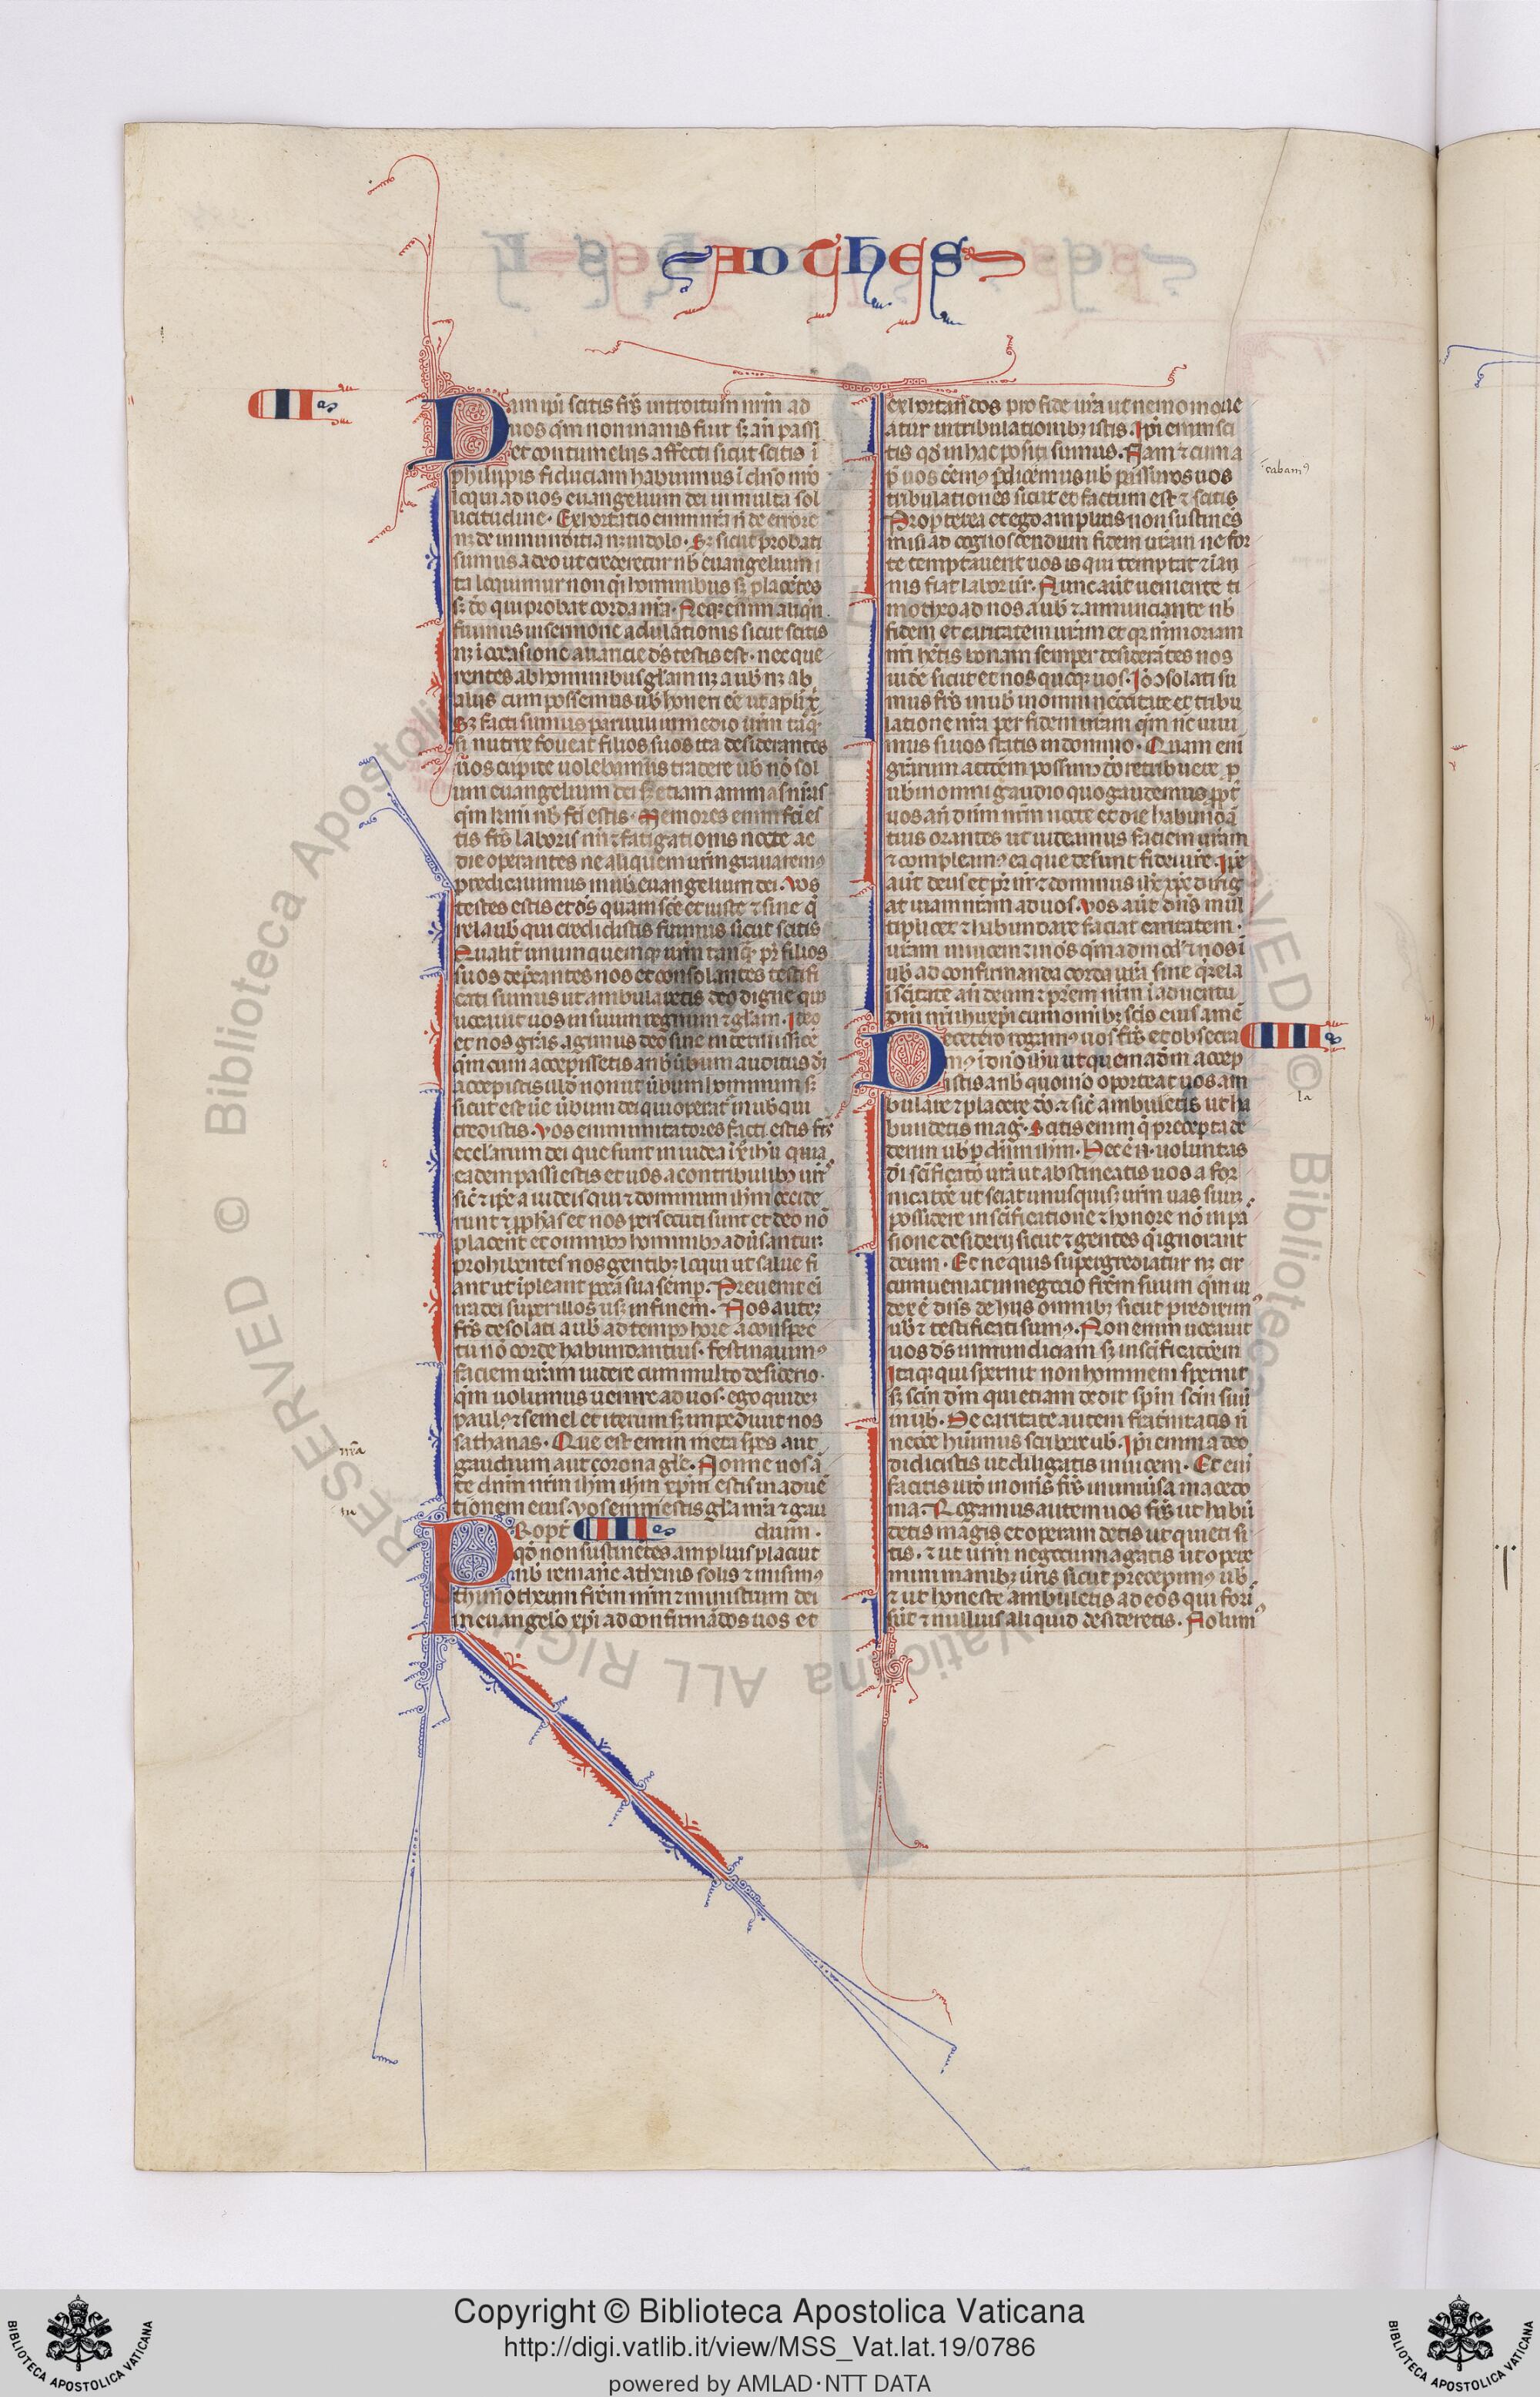 AD THES
II
Nam ipi scitis frs̄ introitum nrm̄ ad
uos qm̄ non inanis fuit sȝ an̄ passi
et contumeliis affecti sicut scitis ī
philippis fiduciam habuimus ī dn̄o nr̄o
loqui ad uos euangelium dei in multa sol
licitudine. Exhortatio enim nr̄a n̄ de errore
nȝ de inmunditia nȝ in dolo. Sȝ sicut probati
sumus a deo ut crederetur nb̄ euangelium i
ta loquimur non q̄i hominibus sȝ placētes
sȝ dō qui probat corda nr̄a. Neqȝ enim aliqn̄
fuimus in sermone adulationis sicut scitis
nȝ ī occasione auaricie ds̄ testis est. nec que
rentes ab hominibus glām nȝ a ub̄ nȝ ab
aliis cum possemus ub̄ honeri eē ut apl̄i xp̄i
Sȝ facti sumus paruuli in medio urm̄ tāq̄
si nutrix foueat filios suos ita desiderantes
uos cupite uolebamus tradere ub̄ nō sol
um euangelium dei sȝ etiam animas nr̄as
qm̄ kmi nb̄ fc̄i estis. Memores enim fc̄i es
tis frs̄ laboris nr̄i ⁊ fatigationis nocte ac
die operantes ne aliquem urm̄ grauaremꝰ
predicauimus in ub̄ euangelium dei. Vos
testes estis et ds̄ quam sc̄e et iuste ⁊ sine q̄
rela ub̄ qui credidistis fuimus sicut scitis
Qualit̄ unumquemqȝ urm̄ tanq̄ pr̄ filios
suos dep̄cantes uos et consolantes testifi
cati sumus ut ambularetis deo digne qui
uocauit uos in suum regnum ⁊ glām. Ideo
et nos grās agimus deo sine intermissiōe
qm̄ cum accepissetis a nb̄ ūbum auditus dī
accepistis illd̄ non ut ūbum hominum sȝ
sicut est ūe ūbum dei qui operat̄ in ub̄ qui
credistis. Vos enim imitatores facti estis frs̄
eccl̄arum dei que sunt in iudea ī xp̄o ihū quia
eadem passi estis et uos a contribulibȝ ur̄is
sic̄ ⁊ ip̄i a iudeis qui ⁊ dominum ihm̄ occide
runt ⁊ pp̄has et nos persecuti sunt et deo nō
placent et omnibȝ hominibȝ aduersantur
prohibentes nos gentibȝ loqui ut salue fi
ant ut īpleant pecc̄a sua semp̄. Preuenit ei
ira dei super illos usqȝ in finem. Nos autem
frs̄ desolati a ub̄ ad tempꝰ hore aconspec
tu nō corde habundantius. festinauimꝰ
faciem ur̄am uidere cum multo desiderio.
qm̄ uolumus uenire ad uos. ego quidem
paulꝰ ⁊ semel et iterum sȝ impediuit nos
sathanas. Que est enim nr̄a spes aut
gaudium aut corona glē. Nonne uos ā
te dnm̄ nrm̄ ihm̄ xp̄m estis in aduē
tionem eius. vos enim estis gl̄a nr̄a ⁊ gau
dium.
nr̄a
in
III
Propt̄
qd̄ non sustinētes amplius placuit
nb̄ remanē athenis solis ⁊ misimꝰ
thimotheum frēm nrm̄ ⁊ ministrum dei
in euangelō xp̄i ad confirmādos uos et
exhortandos pro fide ur̄a ut nemo moue
atur in tribulationibȝ istis. Ip̄i enim sci
tis qd̄ in hac positi sumus. Nam ⁊ cum a
p̄ uos eēmꝰ p̄dicemus ub̄ passuros nos
cabamꝰ
tribulationes sicut et factum est ⁊ scitis
Propterea et ego amplius non sustinēs
misi ad cognoscendum fidem ur̄am ne for
te temptauerit uos is qui temptat ⁊ inan
nis fiat labor nr̄. Nunc aūt ueniente ti
motheo ad nos a ub̄ ⁊ annunciante nb̄
fidem et caritatem ur̄am et qȝ memoriam
nr̄i hētis bonam semper desiderātes nos
uidē sicut et nos quoqȝ uos. Iō cōsolati su
mus frs̄ in ub̄ in omni necc̄itate et tribu
latione nr̄a per fidem ur̄am qm̄ nc̄ uiui
mus si uos statis in domino. Quam eni
grārum acc̄oem possumꝰ dō retribuere p̄
ub̄ in omni gaudio quo gaudemus ppt̄
uos an̄ dūm nrm̄ nocte et die habundā
tius orantes ut uideamus faciem ur̄am
⁊ compleamꝰ ea que desunt fidei ur̄e. Ip̄e
aūt deus et pr̄ nr̄ ⁊ dominus ihc̄ xp̄c dirig
at uiam nr̄am ad uos. vos aūt dn̄s mul
tiplicet ⁊ habundare faciat caritatem
ur̄am inuicem ⁊ in oēs qm̄admod̄ ⁊ nos ī
ub̄ ad confirmanda corda ur̄a sine q̄rela
ī sc̄itate an̄ deum ⁊ pr̄em nrm̄ ī aduentu
dn̄i nr̄i ihū xp̄i cum omibȝ sc̄is eius amē
IIII
De cetero rogamꝰ uos frs̄ et obsecra
mꝰ ī dn̄o ihū ut quemadm̄ accep
istis a nb̄ quomō oporteat uos am
bulare ⁊ placere dō ⁊ sic̄ ambuletis ut ha
la
bundetis magꝭ. Scitis enim q̄ precepta de
derim ub̄ p̄ dn̄m ihm̄. Hec ē n̄ uoluntas
dī sc̄ificatō ur̄a ut abstineatis uos a for
nicatōe ut sciat unusquisqȝ urm̄ uas suum
possidere in sc̄ificatione ⁊ honore nō in pa
sione desiderij sicut ⁊ gentes q̄ ignorant
deum. Et ne quis supergrediatur nȝ cir
cumueniat in negocio frēm suum qm̄ ui
dex ē dn̄s de hijs omnibȝ sicut prediximꝰ
ub̄ ⁊ testificati sumꝰ. Non enim uocauit
uos ds̄ in inmundiciam sȝ in sc̄ificatōem
Itaqȝ qui spernit non hominem spernit
sȝ sc̄m dm̄ qui etiam dedit spm̄ sc̄m suū
in ub̄. De caritate autem fratnitatis n̄
necc̄e hūimus scribere ub̄. Ip̄i enim a deo
didicistis ut diligatis inuicem. Et eni
facitis illd̄ in om̄s frs̄ in uniuīsa macedo
nia. Rogamus autem uos frs̄ ut habū
detis magis et operam detis ut quieti si
tis. ⁊ ut urm̄ negocium agatis ut opere
mini manibȝ ur̄is sicut precepimꝰ ub̄
⁊ ut honeste ambuletis ad eos qui fori
sūt ⁊ nullius aliquid desideretis. Nolumꝰ
© Biblioteca Apostolica Vaticana ALL RIGHTS RESERVED
Copyright © Biblioteca Apostolica Vaticana
http://digi.vatlib.it/view/MSS_Vat.lat.19/0786
powered by AMLAD·NTT DATA
BIBLIOTECA APOSTOLICA VATICANA
BIBLIOTECA APOSTOLICA VATICANA